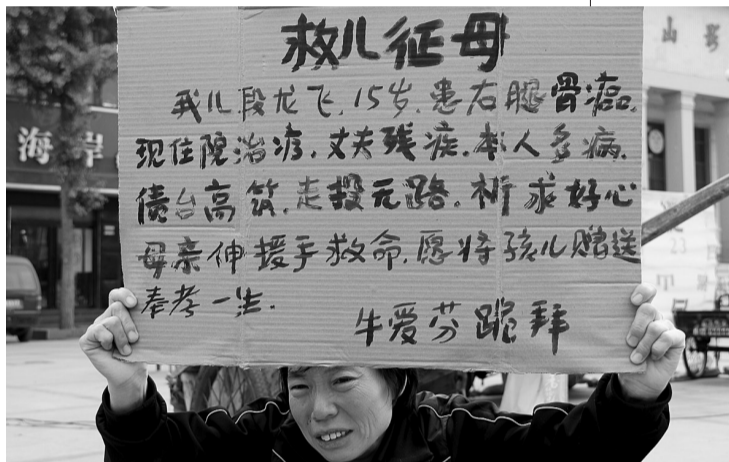 救儿征母
我儿段龙飞.15岁.患右腿骨癌.
现住院治疗.丈夫残疾.本人多病.
债台高筑.走投无路.祈求好心
母亲伸援手救命.愿将孩儿赠送
奉孝一生.
牛爱芬跪拜
海岸
山影